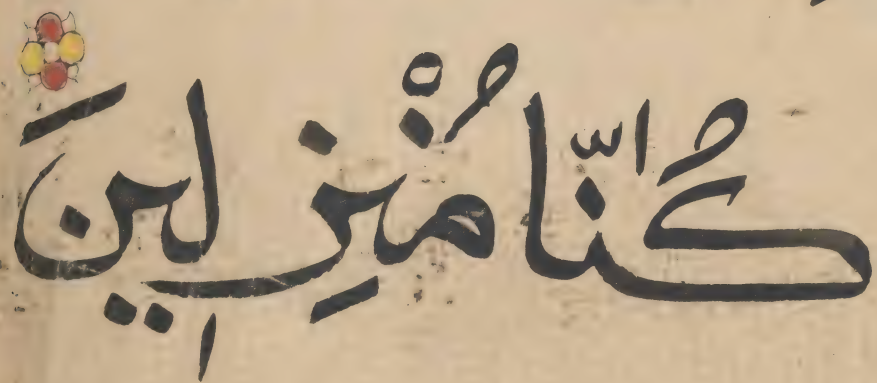 كُنَّا مُنْزِلِينَ